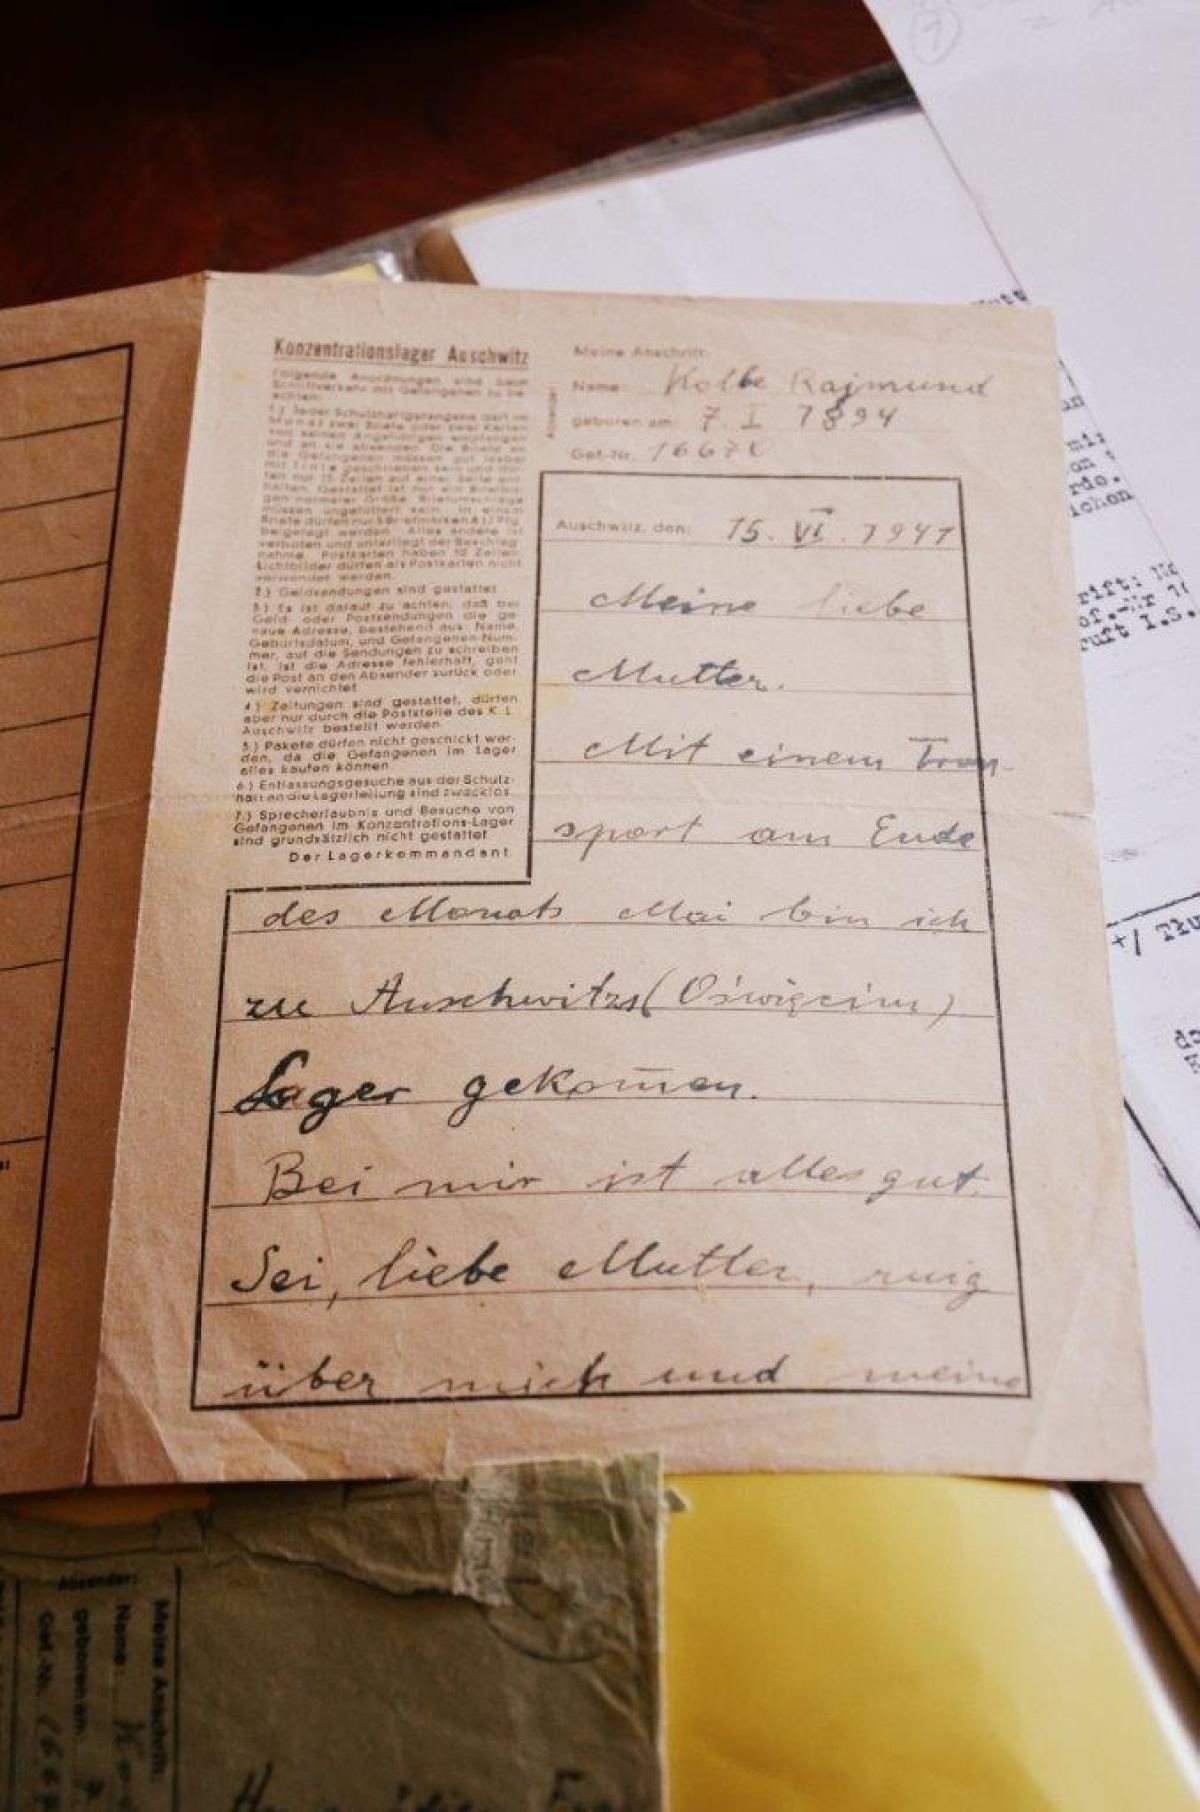 Konzentrationslager Auschwitz
Folgende Anordnungen sind beim
Schriftverkehr mit Gefangenen zu be-
achten:
1.) Jeder Schutzhaftgefangene darf im
Monat zwei Briefe oder zwei Karten
von seinen Angehörigen empfangen
und an sie absenden. Die Briefe an
die Gefangenen müssen gut lesbar
mit Tinte geschrieben sein und dür-
fen nur 15 Zeilen auf einer Seite ent-
halten. Gestattet ist nur ein Briefbo-
gen normaler Größe. Briefumschläge
müssen ungefüttert sein. In einem
Briefe dürfen nur 5 Briefmarken à 12 Pfg.
beigelegt werden. Alles andere ist
verboten und unterliegt der Beschlag-
nahme. Postkarten haben 10 Zeilen.
Lichtbilder dürfen als Postkarten nicht
verwendet werden.
2.) Geldsendungen sind gestattet.
3.) Es ist darauf zu achten, daß bei
Geld- oder Postsendungen die ge-
naue Adresse, bestehend aus: Name,
Geburtsdatum, und Gefangenen-Num-
mer, auf die Sendungen zu schreiben
ist. Ist die Adresse fehlerhaft, geht
die Post an den Absender zurück oder
wird vernichtet.
4.) Zeitungen sind gestattet, dürfen
aber nur durch die Poststelle des K. L.
Auschwitz bestellt werden.
5.) Pakete dürfen nicht geschickt wer-
den, da die Gefangenen im Lager
alles kaufen können.
6.) Entlassungsgesuche aus der Schutz-
haft an die Lagerleitung sind zwecklos.
7.) Sprecherlaubnis und Besuche von
Gefangenen im Konzentrations-Lager
sind grundsätzlich nicht gestattet.
Der Lagerkommandant
Absender:
Meine Anschrift:
Name: Kolbe Rajmund
geboren am: 7. I 1894
Gef.-Nr. 16670
Auschwitz, den: 15. VI. 1941
Meine liebe
Mutter.
Mit einem Tran-
sport am Ende
des Monats Mai bin ich
zu Auschwitzs (Oświęcim)
Lager gekom̄en.
Bei mir ist alles gut.
Sei, liebe Mutter, ruig
über mich und meine
Meine Anschrift:
Name:
geboren am:
Gef.-Nr.
Absender: